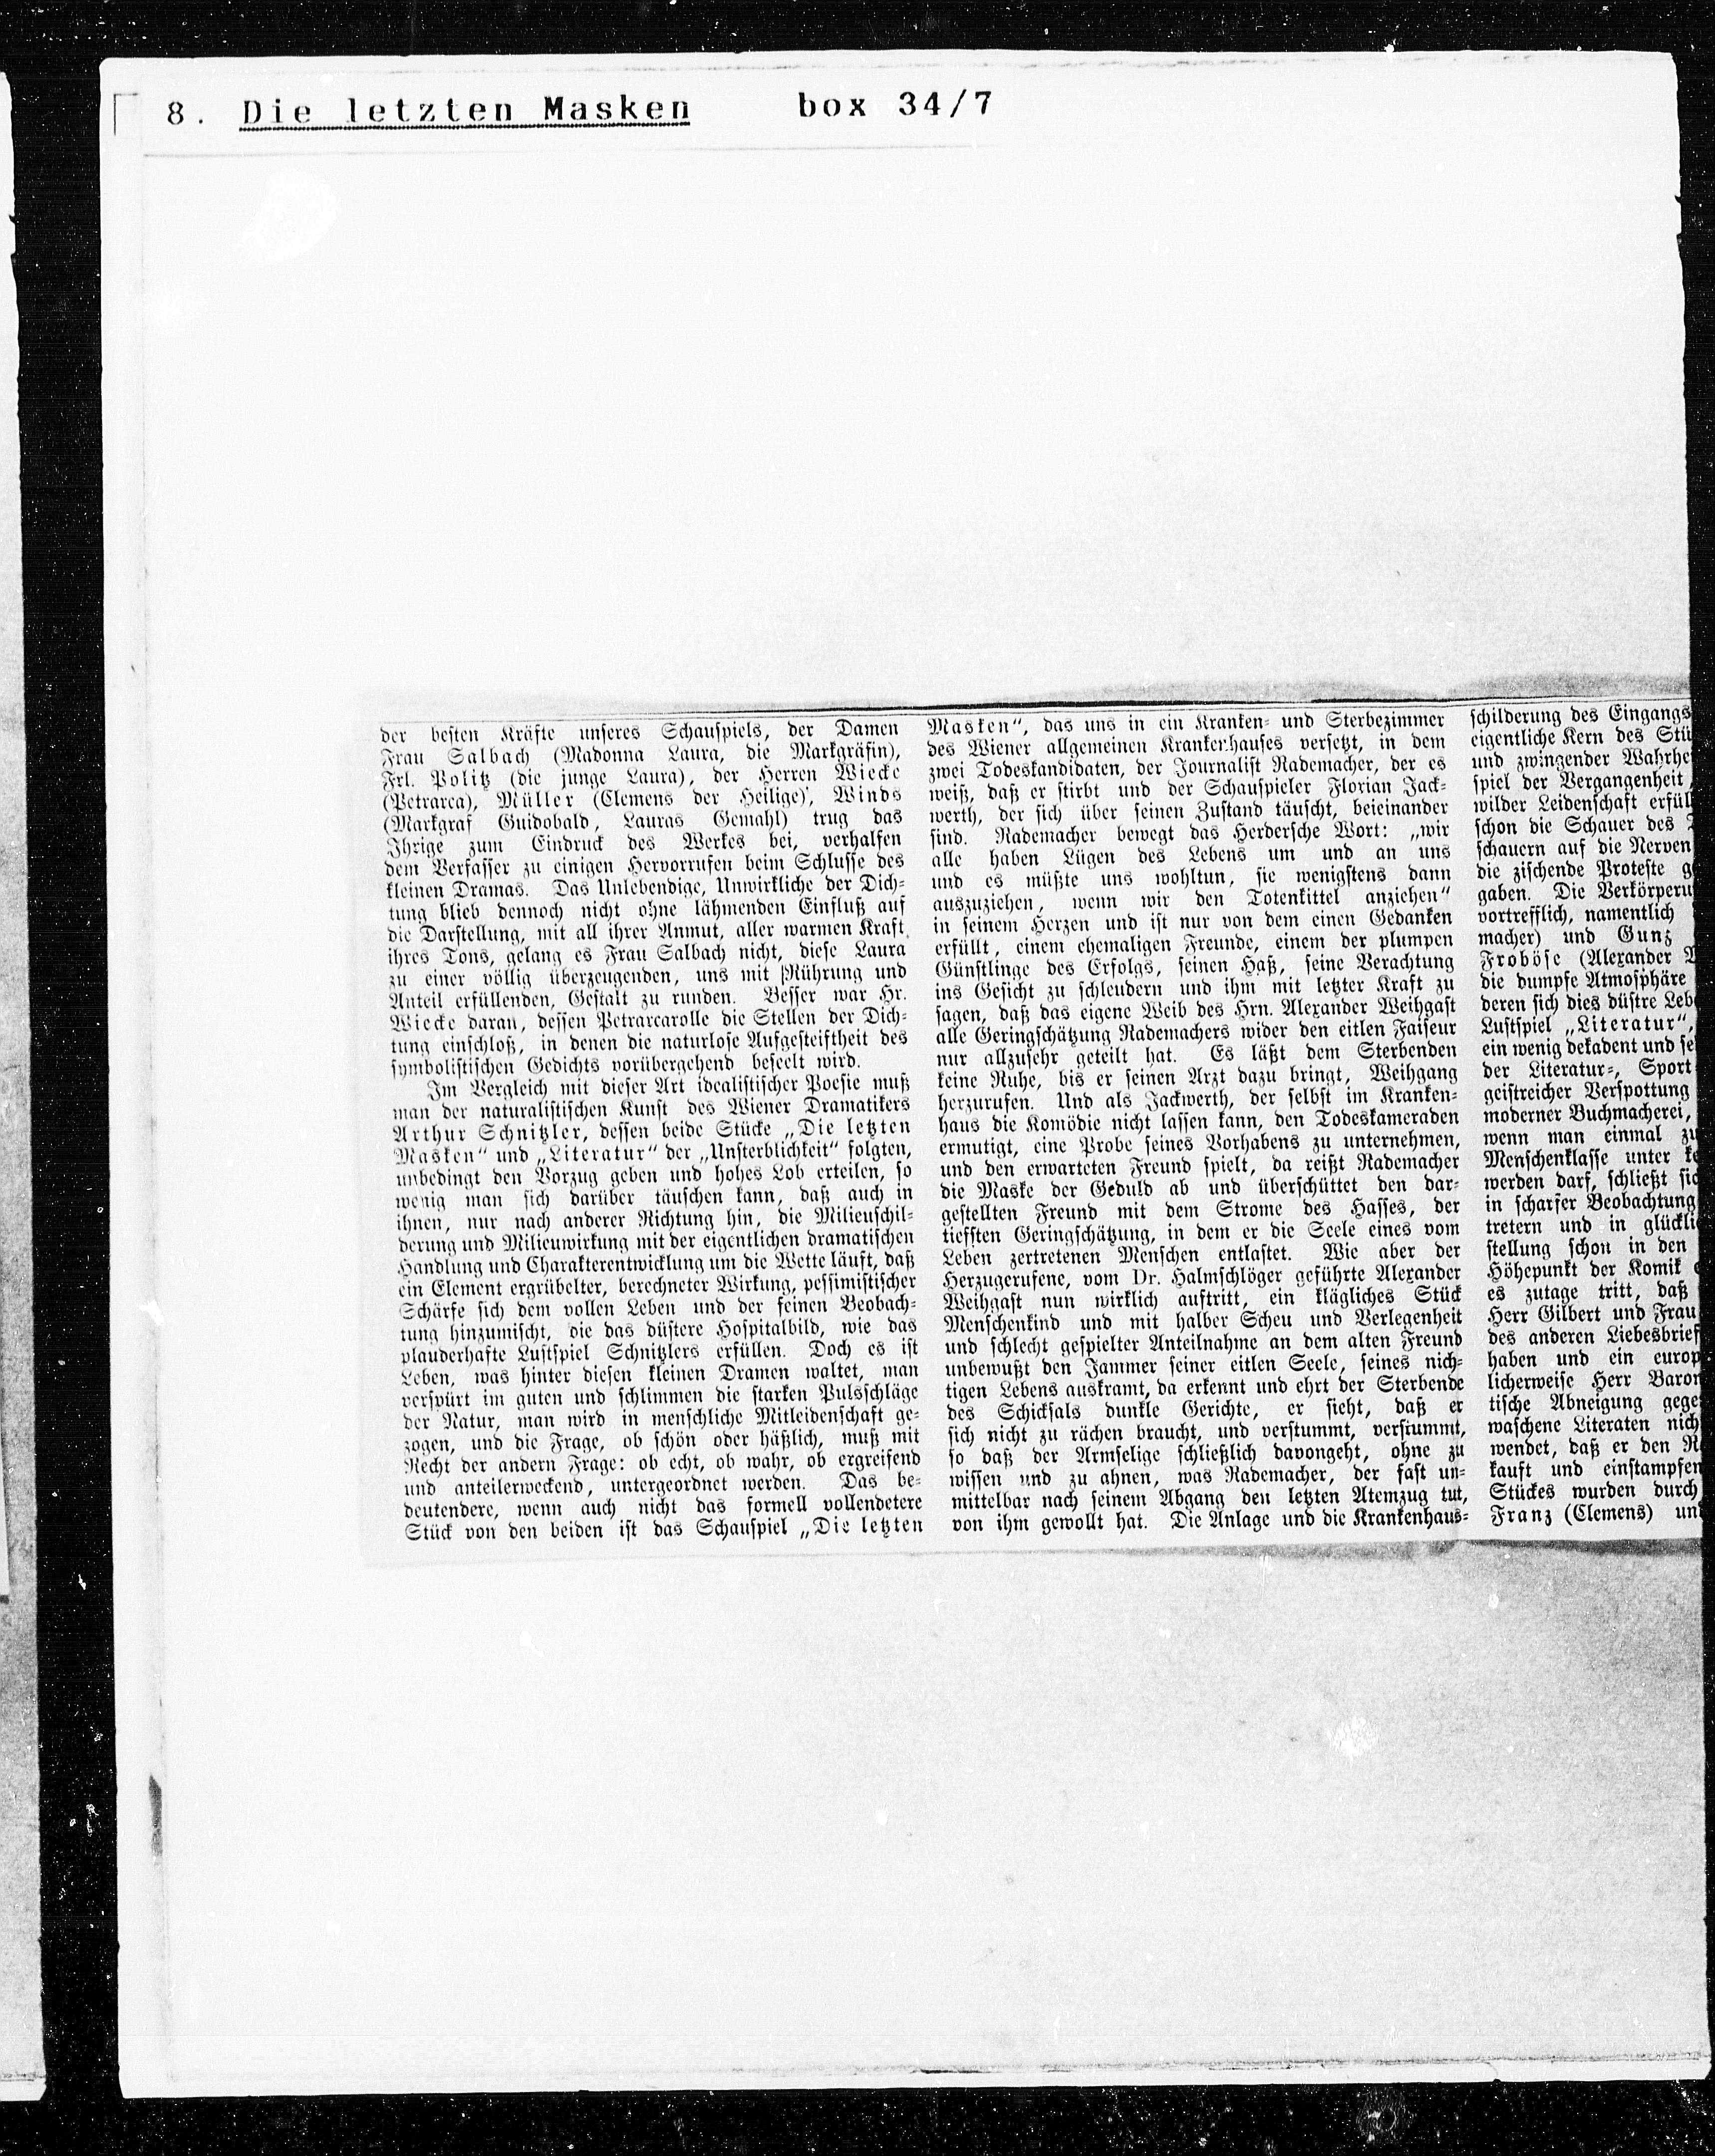 8. Die letzten Masken box 34/7
der besten Kräfte unseres Schauspiels, der Damen
Frau Salbach (Madonna Laura, die Markgräfin),
Frl. Politz (die junge Laura), der Herren Wiecke
(Petrarca), Müller (Clemens der Heilige), Winds
(Markgraf Guidobald, Lauras Gemahl) trug das
Ihrige zum Eindruck des Werkes bei, verhalfen
dem Verfasser zu einigen Hervorrufen beim Schlusse des
kleinen Dramas. Das Unlebendige, Unwirkliche der Dich-
tung blieb dennoch nicht ohne lähmenden Einfluß auf
die Darstellung, mit all ihrer Anmut, aller warmen Kraft
ihres Tons, gelang es Frau Salbach nicht, diese Laura
zu einer völlig überzeugenden, uns mit Rührung und
Anteil erfüllenden, Gestalt zu runden. Besser war Hr.
Wiecke daran, dessen Petrarcarolle die Stellen der Dich-
tung einschloß, in denen die naturlose Aufgesteiftheit des
symbolistischen Gedichts vorübergehend beseelt wird.
Im Vergleich mit dieser Art idealistischer Poesie muß
man der naturalistischen Kunst des Wiener Dramatikers
Arthur Schnitzler, dessen beide Stücke „Die letzten
Masken“ und „Literatur“ der „Unsterblichkeit“ folgten,
unbedingt den Vorzug geben und hohes Lob erteilen, so
wenig man sich darüber täuschen kann, daß auch in
ihnen, nur nach anderer Richtung hin, die Milieuschil-
derung und Milieuwirkung mit der eigentlichen dramatischen
Handlung und Charakterentwicklung um die Wette läuft, daß
ein Element ergrübelter, berechneter Wirkung, pessimistischer
Schärfe sich dem vollen Leben und der feinen Beobach-
tung hinzumischt, die das düstere Hospitalbild, wie das
plauderhafte Lustspiel Schnitzlers erfüllen. Doch es ist
Leben, was hinter diesen kleinen Dramen waltet, man
verspürt im guten und schlimmen die starken Pulsschläge
der Natur, man wird in menschliche Mitleidenschaft ge-
zogen, und die Frage, ob schön oder häßlich, muß mit
Recht der andern Frage: ob echt, ob wahr, ob ergreifend
und anteilerweckend, untergeordnet werden. Das be-
deutendere, wenn auch nicht das formell vollendetere
Stück von den beiden ist das Schauspiel „Die letzten
Masken“, das uns in ein Kranken- und Sterbezimmer
des Wiener allgemeinen Krankenhauses versetzt, in dem
zwei Todeskandidaten, der Journalist Rademacher, der es
weiß, daß er stirbt und der Schauspieler Florian Jack-
werth, der sich über seinen Zustand täuscht, beieinander
sind. Rademacher bewegt das Herdersche Wort: „wir
alle haben Lügen des Lebens um und an uns
und es müßte uns wohltun, sie wenigstens dann
auszuziehen, wenn wir den Totenkittel anziehen“
in seinem Herzen und ist nur von dem einen Gedanken
erfüllt, einem ehemaligen Freunde, einem der plumpen
Günstlinge des Erfolgs, seinen Haß, seine Verachtung
ins Gesicht zu schleudern und ihm mit letzter Kraft zu
sagen, daß das eigene Weib des Hrn. Alexander Weihgast
alle Geringschätzung Rademachers wider den eitlen Faiseur
nur allzusehr geteilt hat. Es läßt dem Sterbenden
keine Ruhe, bis er seinen Arzt dazu bringt, Weihgang
herzurufen. Und als Jackwerth, der selbst im Kranken-
haus die Komödie nicht lassen kann, den Todeskameraden
ermutigt, eine Probe seines Vorhabens zu unternehmen,
und den erwarteten Freund spielt, da reißt Rademacher
die Maske der Geduld ab und überschüttet den dar-
gestellten Freund mit dem Strome des Hasses, der
tiefsten Geringschätzung, in dem er die Seele eines vom
Leben zertretenen Menschen entlastet. Wie aber der
Herzugerufene, vom Dr. Halmschlöger geführte Alexander
Weihgast nun wirklich auftritt, ein klägliches Stück
Menschenkind und mit halber Scheu und Verlegenheit
und schlecht gespielter Anteilnahme an dem alten Freund
unbewußt den Jammer seiner eitlen Seele, seines nich-
tigen Lebens auskramt, da erkennt und ehrt der Sterbende
des Schicksals dunkle Gerichte, er sieht, daß er
sich nicht zu rächen braucht, und verstummt, verstummt,
so daß der Armselige schließlich davongeht, ohne zu
wissen und zu ahnen, was Rademacher, der fast un-
mittelbar nach seinem Abgang den letzten Atemzug tut,
von ihm gewollt hat. Die Anlage und die Krankenhaus-
schilderung des Eingangs
eigentliche Kern des Stü
und zwingender Wahrhe
spiel der Vergangenheit
wilder Leidenschaft erfül
schon die Schauer des
schauern auf die Nerven
die zischende Proteste g
gaben. Die Verkörperu
vortrefflich, namentlich
macher) und Gunz
Froböse (Alexander
die dumpfe Atmosphäre
deren sich dies düstre Leb
Lustspiel „Literatur“,
ein wenig dekadent und se
der Literatur-, Sport-
geistreicher Verspottung
moderner Buchmacherei,
wenn man einmal zu
Menschenklasse unter ke
werden darf, schließt sic
in scharfer Beobachtung
tretern und in glückli
stellung schon in den
Höhepunkt der Komik
es zutage tritt, daß
Herr Gilbert und Frau
des anderen Liebesbrief
haben und ein europ
licherweise Herr Baron
tische Abneigung gege
waschene Literaten nich
wendet, daß er den R
kauft und einstampfen
Stückes wurden durch
Franz (Clemens) und